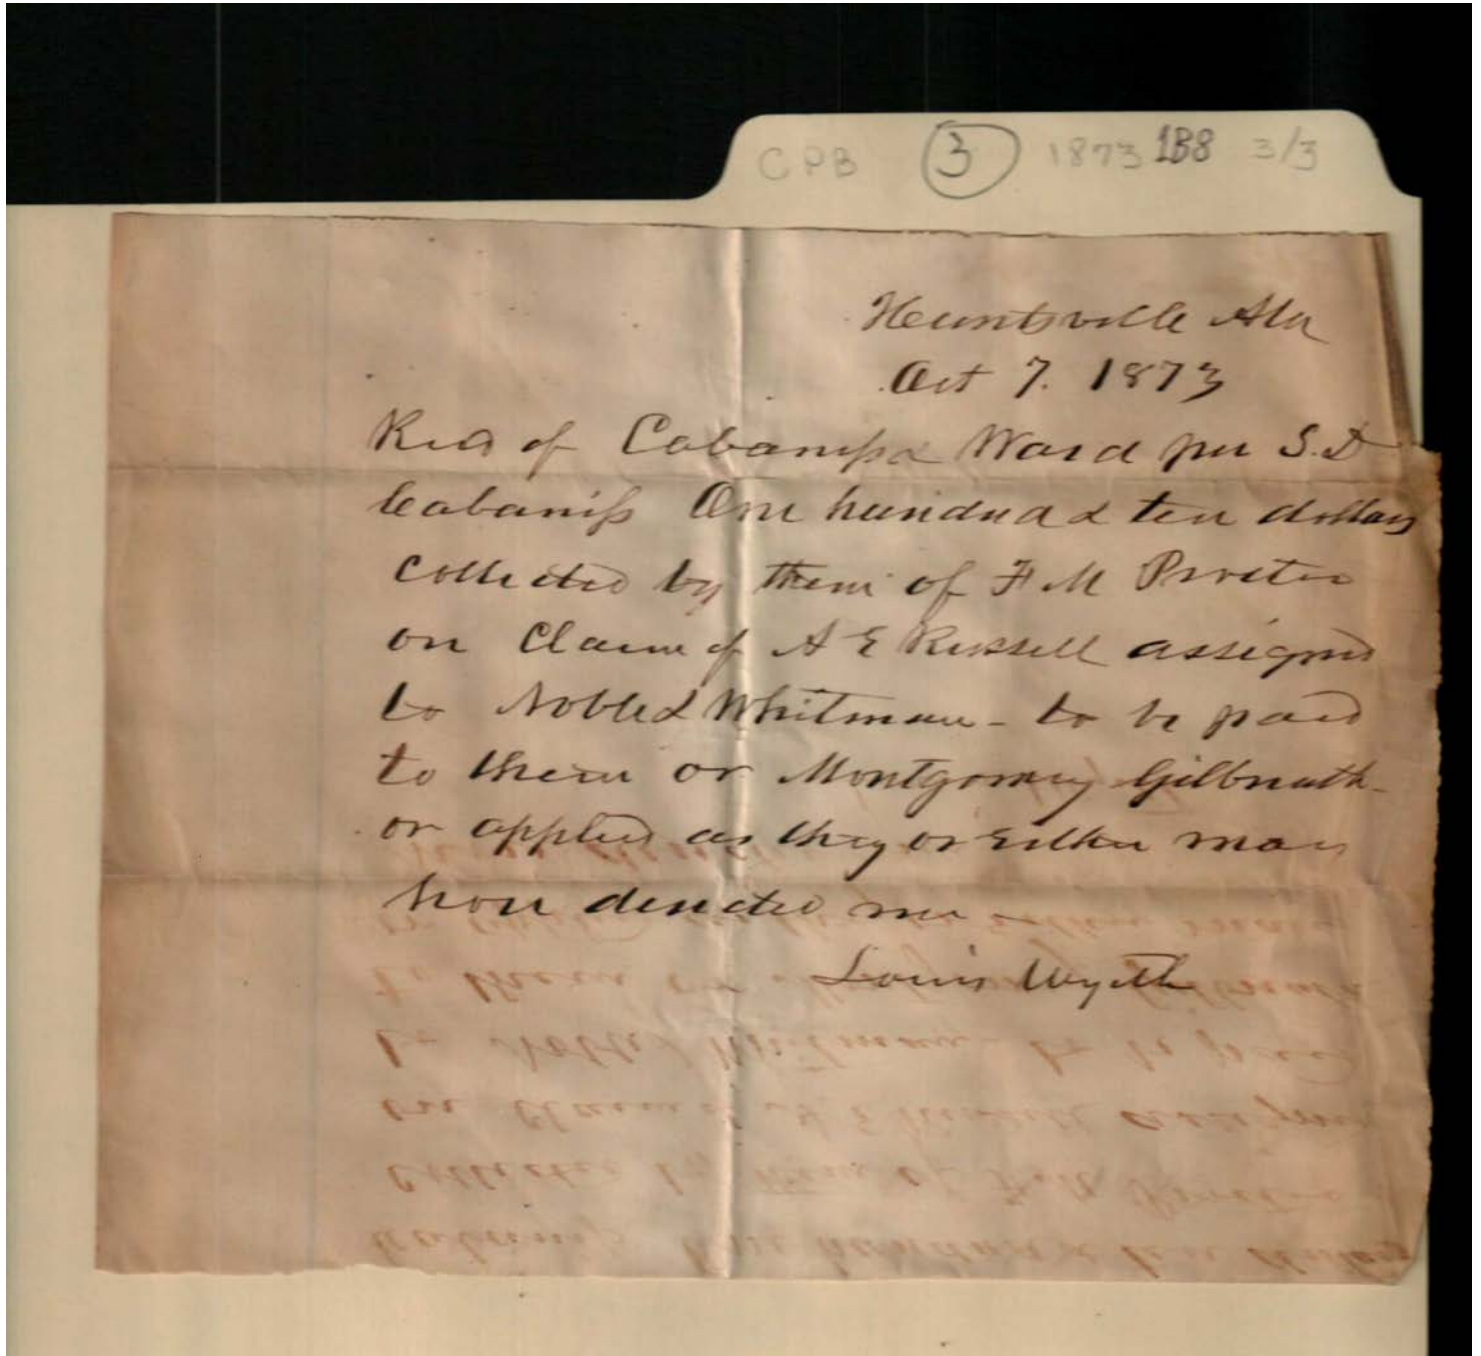 CPB 3 1873 1B8 3/3
Huntsville Ala
Oct 7. 1873
Recd of Cabaniss & Ward per S. D
Cabaniss One hundred & ten dollars
collected by them of F M Procter
on Claim of A E Russell assigned
to Noble & Whitman - to be paid
to them or Montgomery Gilbreath -
or applied as they or either may
have directed me
Louis Wyeth